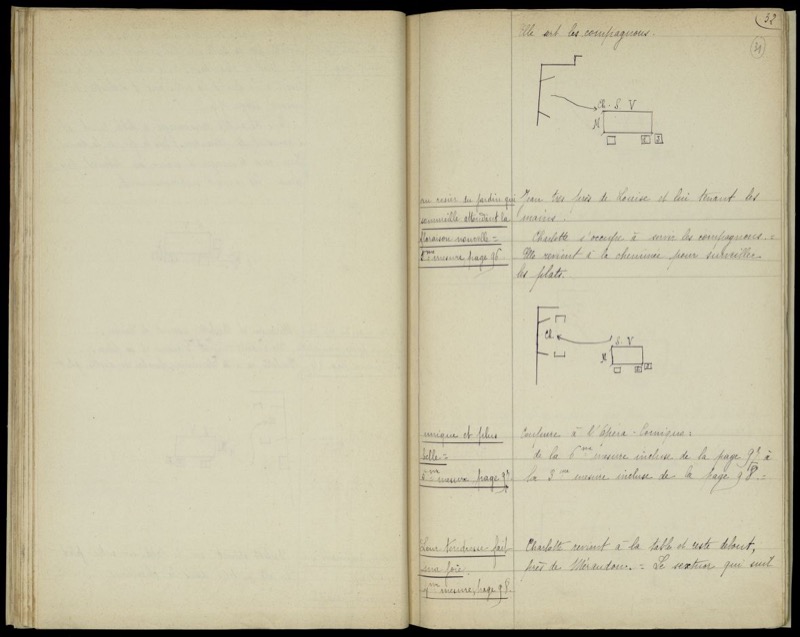 32
31
Elle sert les compagnons.
Ch. S. V
M
au désir du jardin qui
sommeille attendant la
floraison nouvelle =
2me mesure, page 96
Jean très près de Louise et lui tenant les
mains.
Charlotte s'occupe à servir les compagnons. =
Elle revient à la cheminée pour surveiller
les plats.
Ch.
S. V
M
unique et plus
belle =
6me mesure, page 97
Coupure à l'Opéra-Comique:
de la 6me mesure incluse de la page 97 à
la 3me mesure incluse de la page 98. =
Leur tendresse fait
ma joie.
4me mesure, page 98.
Charlotte revient à la table et reste debout,
près de Mérandon. = Le sextuor qui suit